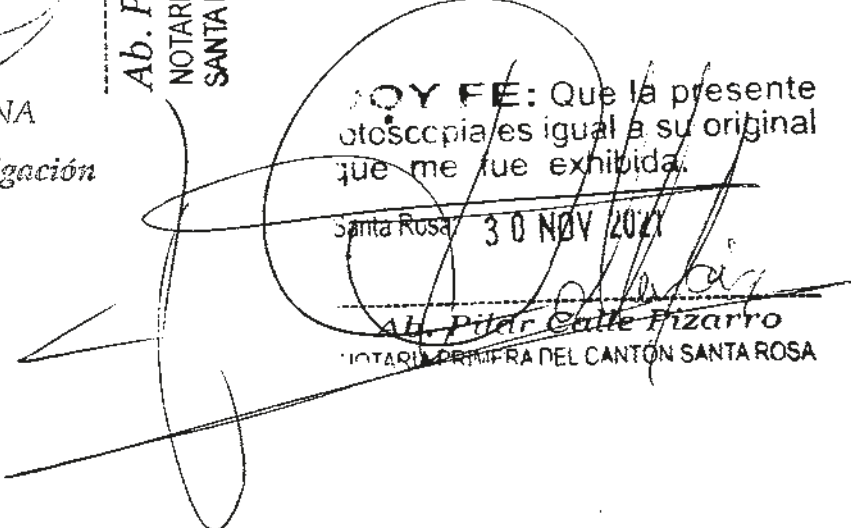 Ab. P
NOTARI
SANTA
NA
gación
OY FE: Que la presente
otosccpia es igual a su original
que me fue exhibida.
Santa Rosa, 30 NOV 2021
Ab. Pilar Calle Pizarro
NOTARIA PRIMERA DEL CANTÓN SANTA ROSA